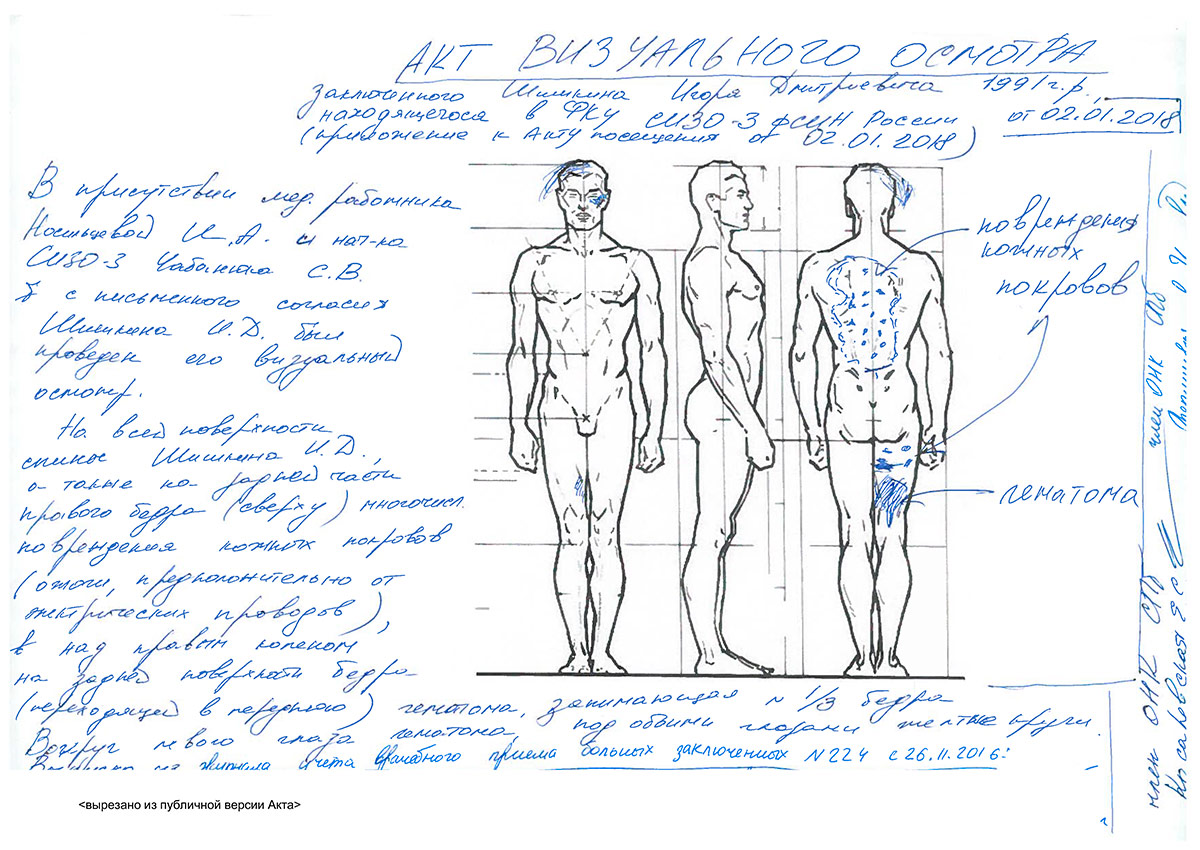 АКТ ВИЗУАЛЬНОГО ОСМОТРА
Заключенного Шишкина Игоря Дмитриевича 1991 г.р.,
находящегося в ФКУ СИЗО-3 ФСИН России
от 02.01.2018
(приложение к Акту посещения от 02.01.2018)
В присутствии мед. работника
Носильцевой И.А. и нач-ка
СИЗО-3 Чабанюка С.В.
с письменного согласия
Шишкина И.Д. был
проведен его визуальный
осмотр.
На всей поверхности
спины Шишкина И.Д.,
а также на задней части
правого бедра (сверху) многочисл.
повреждения кожных покровов
(ожоги, предположительно от
электрических проводов),
над правым коленом
на задней поверхности бедра
(переходящей в переднюю) гематома, занимающая ≈ 1/3 бедра
Вокруг левого глаза гематома под обоими глазами желтые круги.
из журнала учета врачебного приема больных заключенных N224 с 26.11.2016:
повреждения
кожных
покровов
гематома
член ОНК СПб
Косаковская Я С
член ОНК СПб
<вырезано из публичной версии Акта>